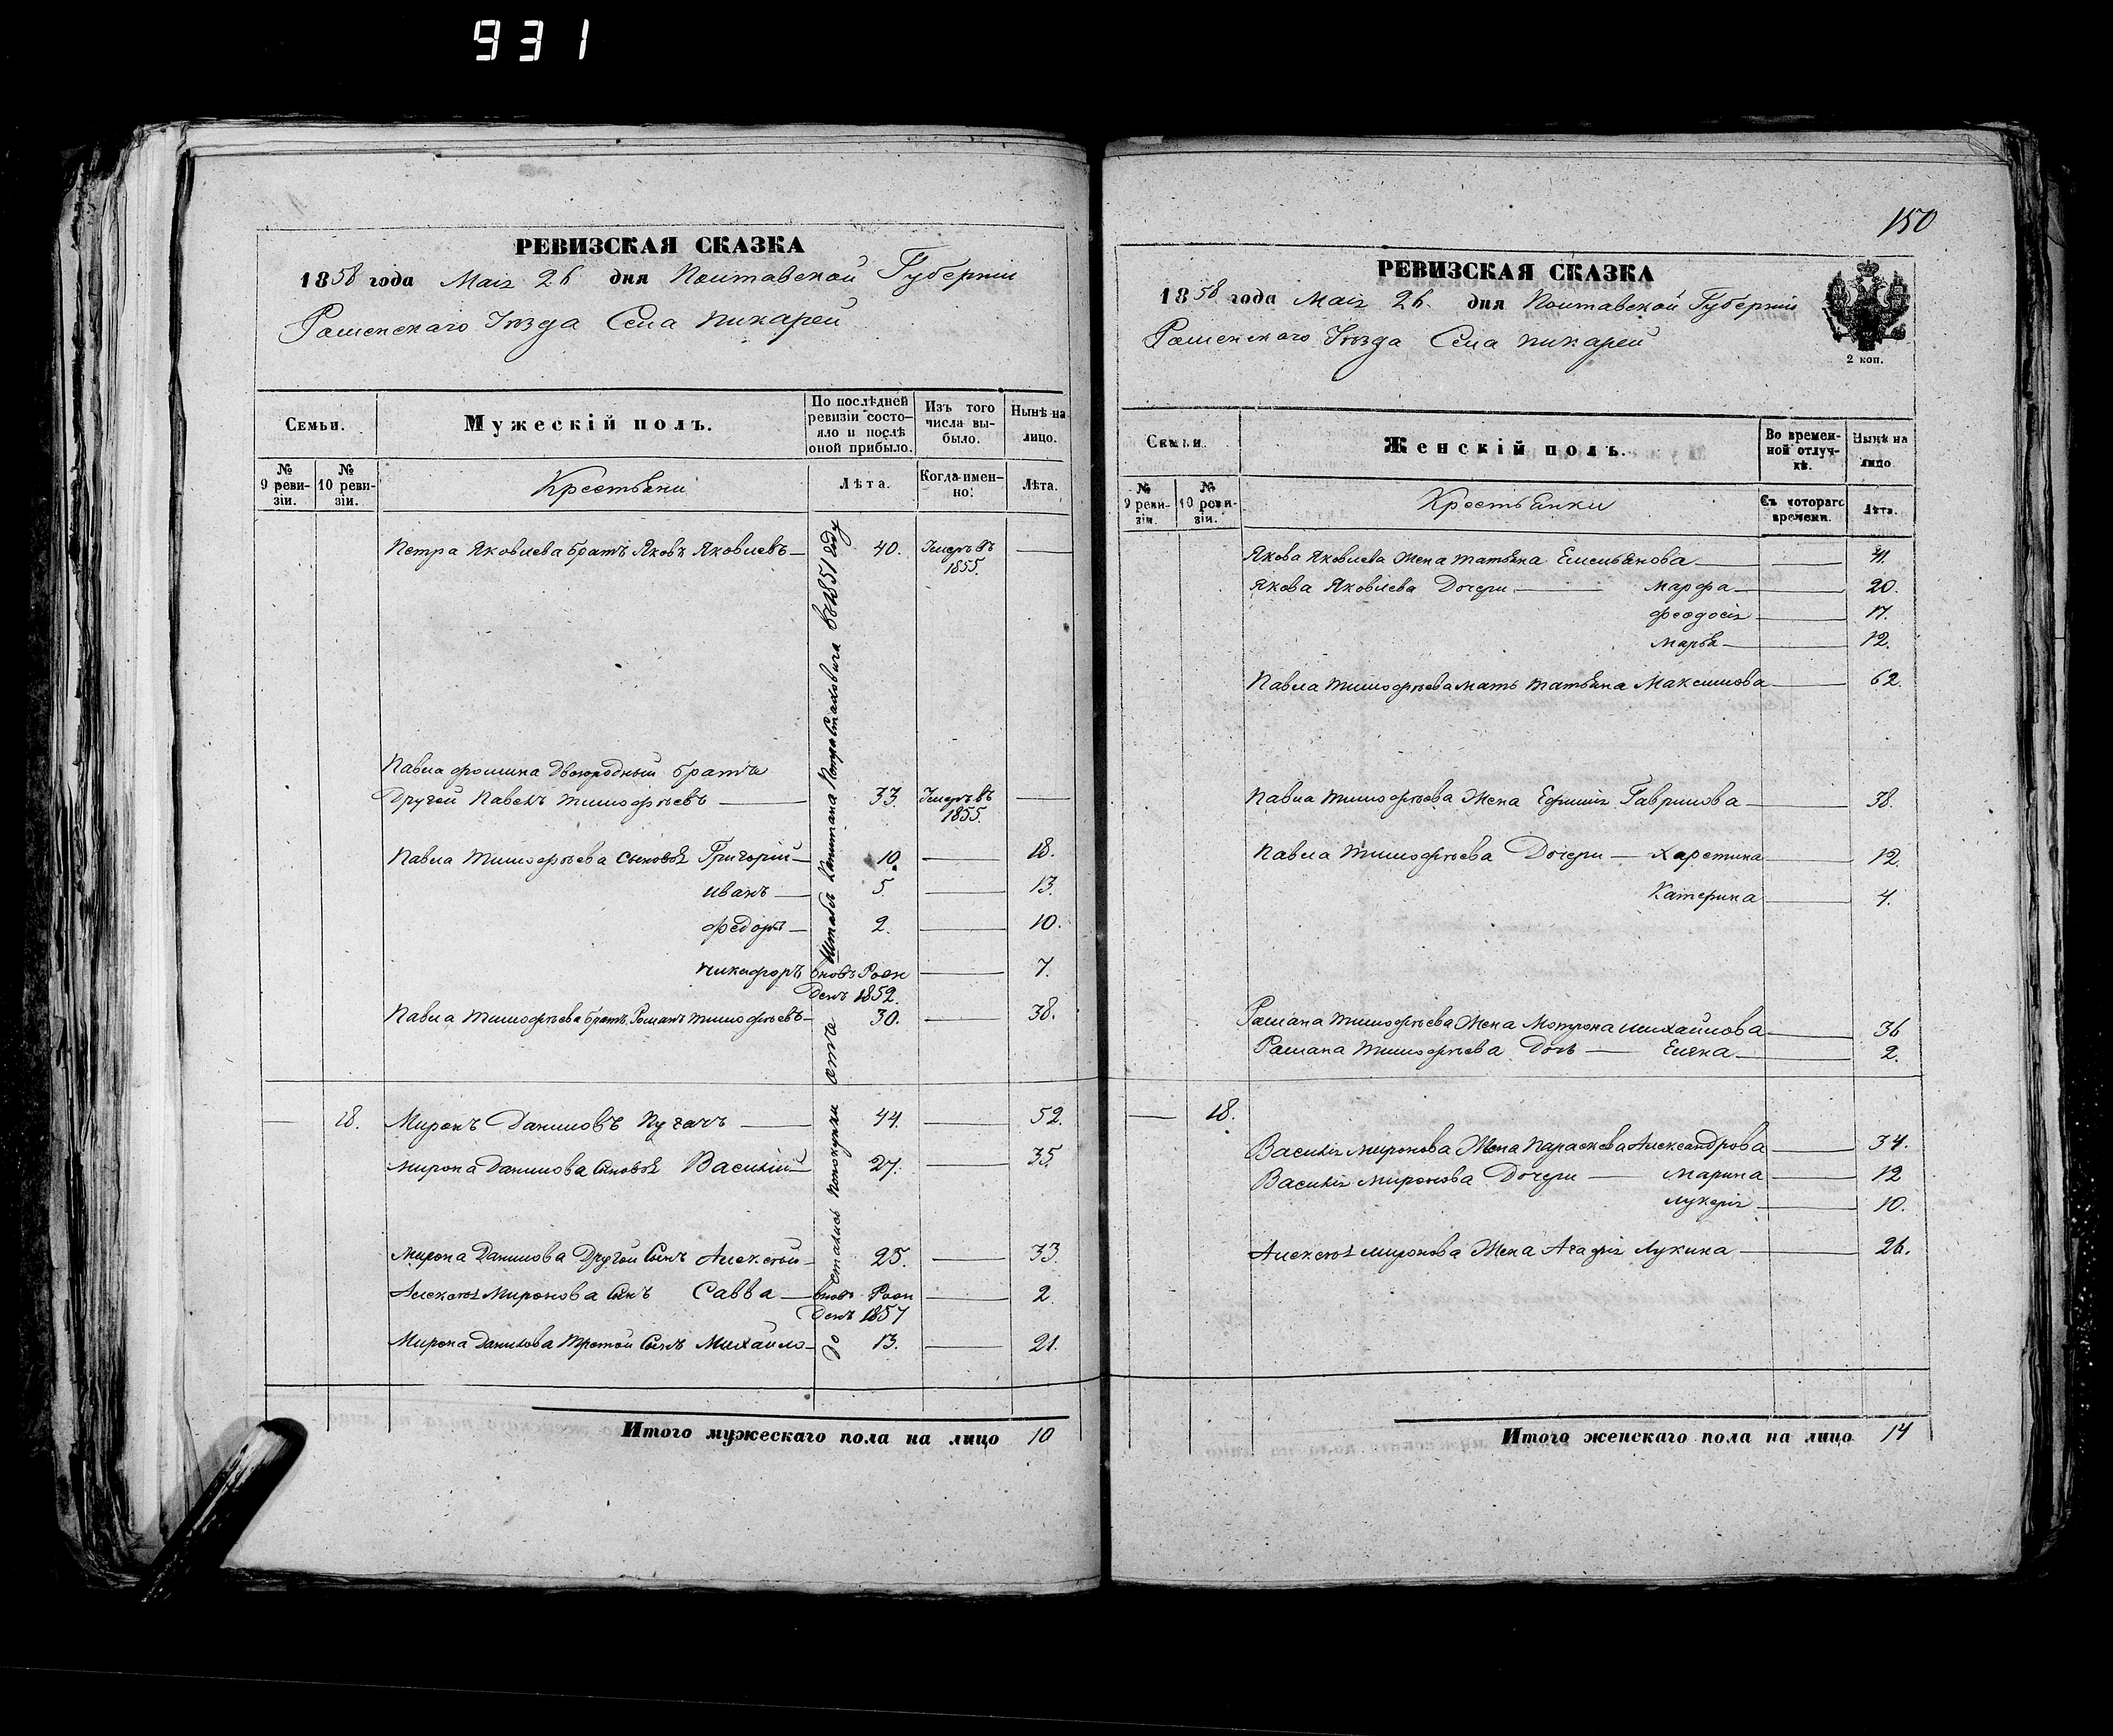 931
РЕВИЗСКАЯ СКАЗКА
1858 года Маія 26 дня Полтавской Губерніи
Роменскаго Уѣзда Села Пикарей
Семьи.
Мужескій полъ.
По послѣдней ревизіи состо-
яло и послѣ оной прибыло.
Изъ того числа вы-
было.
Нынѣ на лицо.
№ 9 реви-
зіи.
№ 10 реви-
зіи.
Крестьяни
Лѣта.
Когда имен-
но:
Лѣта.
Петра Яковлева братъ Яковъ Яковлевъ 40. Умеръ въ 1855.
Павла Фомина двоюродный братъ
Другой Павелъ Тимофѣевъ 33. Умеръ въ 1855.
Павла Тимофѣева сыновья Григорій 10. 18.
Иванъ 5. 13.
Федоръ 2. 10.
Никифоръ вновь Рожденъ 1852. 7.
Павла Тимофѣева братъ Романъ Тимофѣевъ 30. 38.
18. Миронъ Даниловъ Пугачъ 44. 52.
Мирона Данилова сыновья Василій 27. 35.
Мирона Данилова Другой сынъ Алексѣй 25. 33.
Алексѣя Миронова сынъ Савва вновь Рожденъ 1857 2
Мирона Данилова Третой сынъ Михайло 13. 21.
До стались по покупки отъ Штабъ Капитана Петра въ 1851 году
Итого мужескаго пола на лицо 10
150
РЕВИЗСКАЯ СКАЗКА
1858 года Маія 26 дня Полтавской Губерніи
Роменскаго Уѣзда Села Пикарей
2 коп.
Семьи.
Женскій полъ.
Во времен-
ной отлуч-
кѣ.
Нынѣ на лицо
№ 9 реви-
зіи.
№ 10 реви-
зіи.
Крестьянки
Съ котораго времени.
Лѣта.
Якова Яковлева Жена Татьяна Емельянова 41.
Якова Яковлева Дочери Марфа 20.
Феодосія 17.
Марья 12.
Павла Тимофѣева мать Татьяна Максимова 62.
Павла Тимофѣева Жена Ефимія Гаврилова 38.
Павла Тимофѣева Дочери Харетина 12.
Катерина 4.
Романа Тимофѣева Жена Мотрона Михайлова 36
Романа Тимофѣева Дочь Елена 2.
18.
Василія Миронова Жена Параскева Александрова 34.
Василія Миронова Дочери Марина 12
Лукерія 10.
Алексѣя Миронова Жена Агафія Лукина 26.
Итого женскаго пола на лицо 14